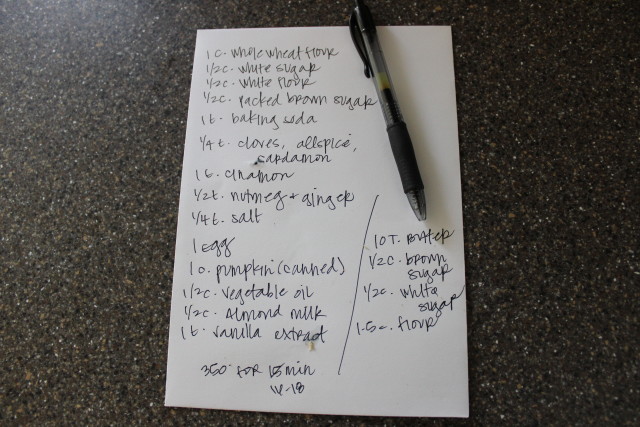 1 c. whole wheat flour
1/2 c. white sugar
1/2 c. white flour
1/2 c. packed brown sugar
1 t. baking soda
1/4 t. cloves, allspice,
cardamom
1 t. cinamon
1/2 t. nutmeg + ginger
1/4 t. salt
1 egg
1 c. pumpkin (canned)
1/2 c. vegetable oil
1/2 c. almond milk
1 t. vanilla extract
350° for 15 min
16-18
10 T. Butter
1/2 c. brown
sugar
1/2 c. white
sugar
1.5 c. flour